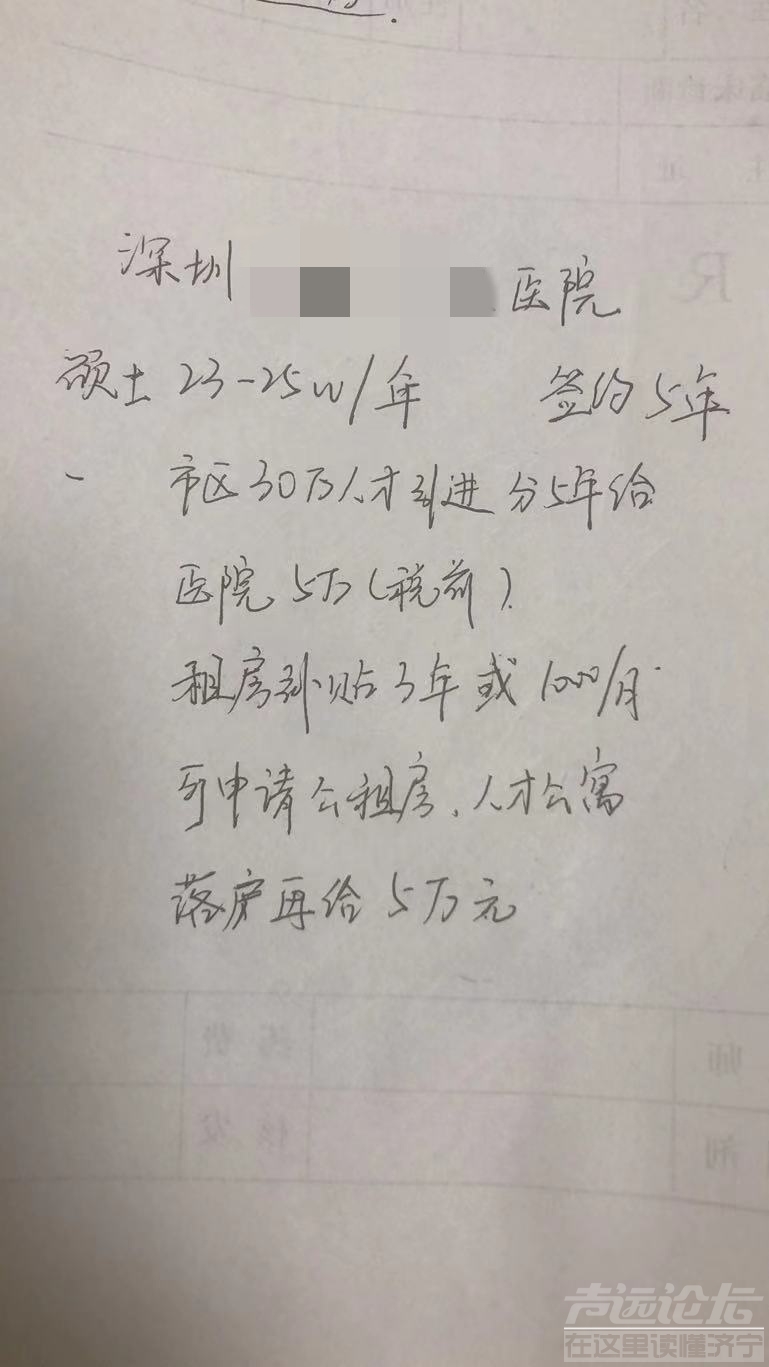 深圳 医院
硕士 23-25w/年 签约5年
- 市区30万人才引进 分5年给
医院 5万(税前).
租房补贴3年或1000/月
可申请公租房、人才公寓
落户再给5万元
声远论坛
在这里读懂济宁